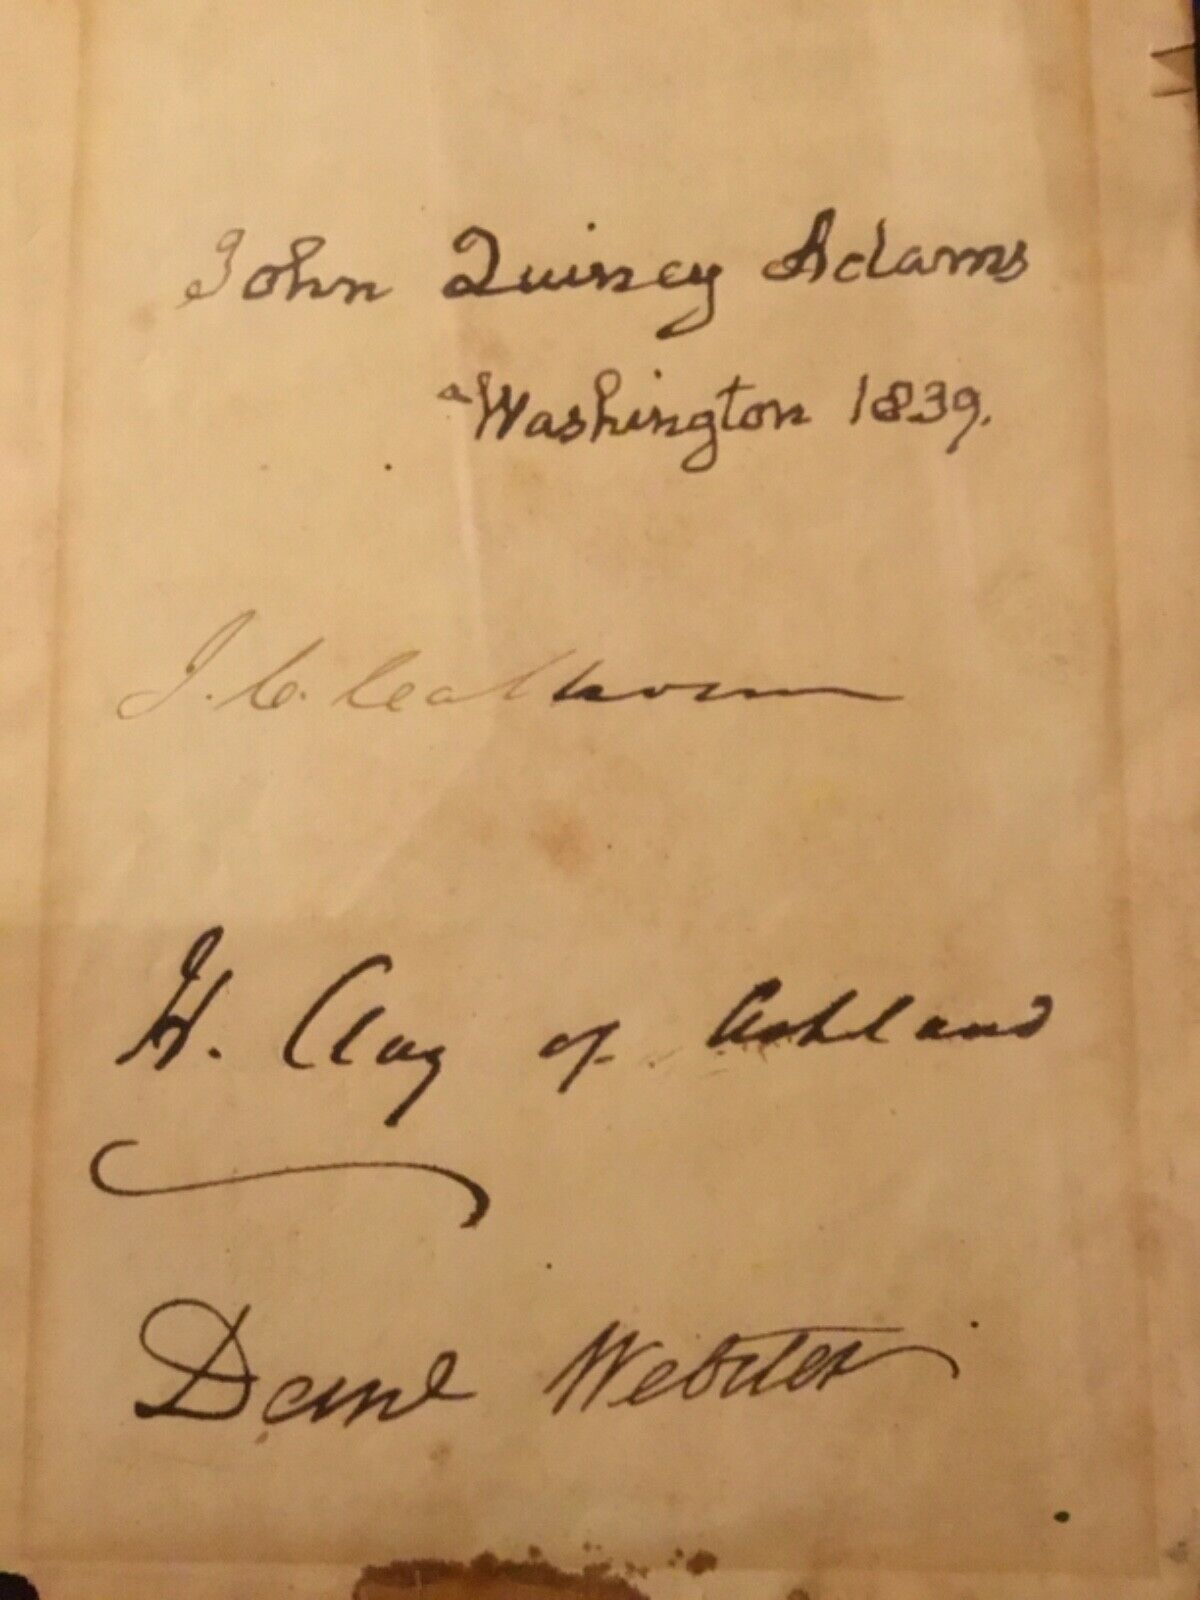 John Quincy Adams
Washington 1839.
J. C. Calhoun
H. Clay of Ashland
Danl Webster